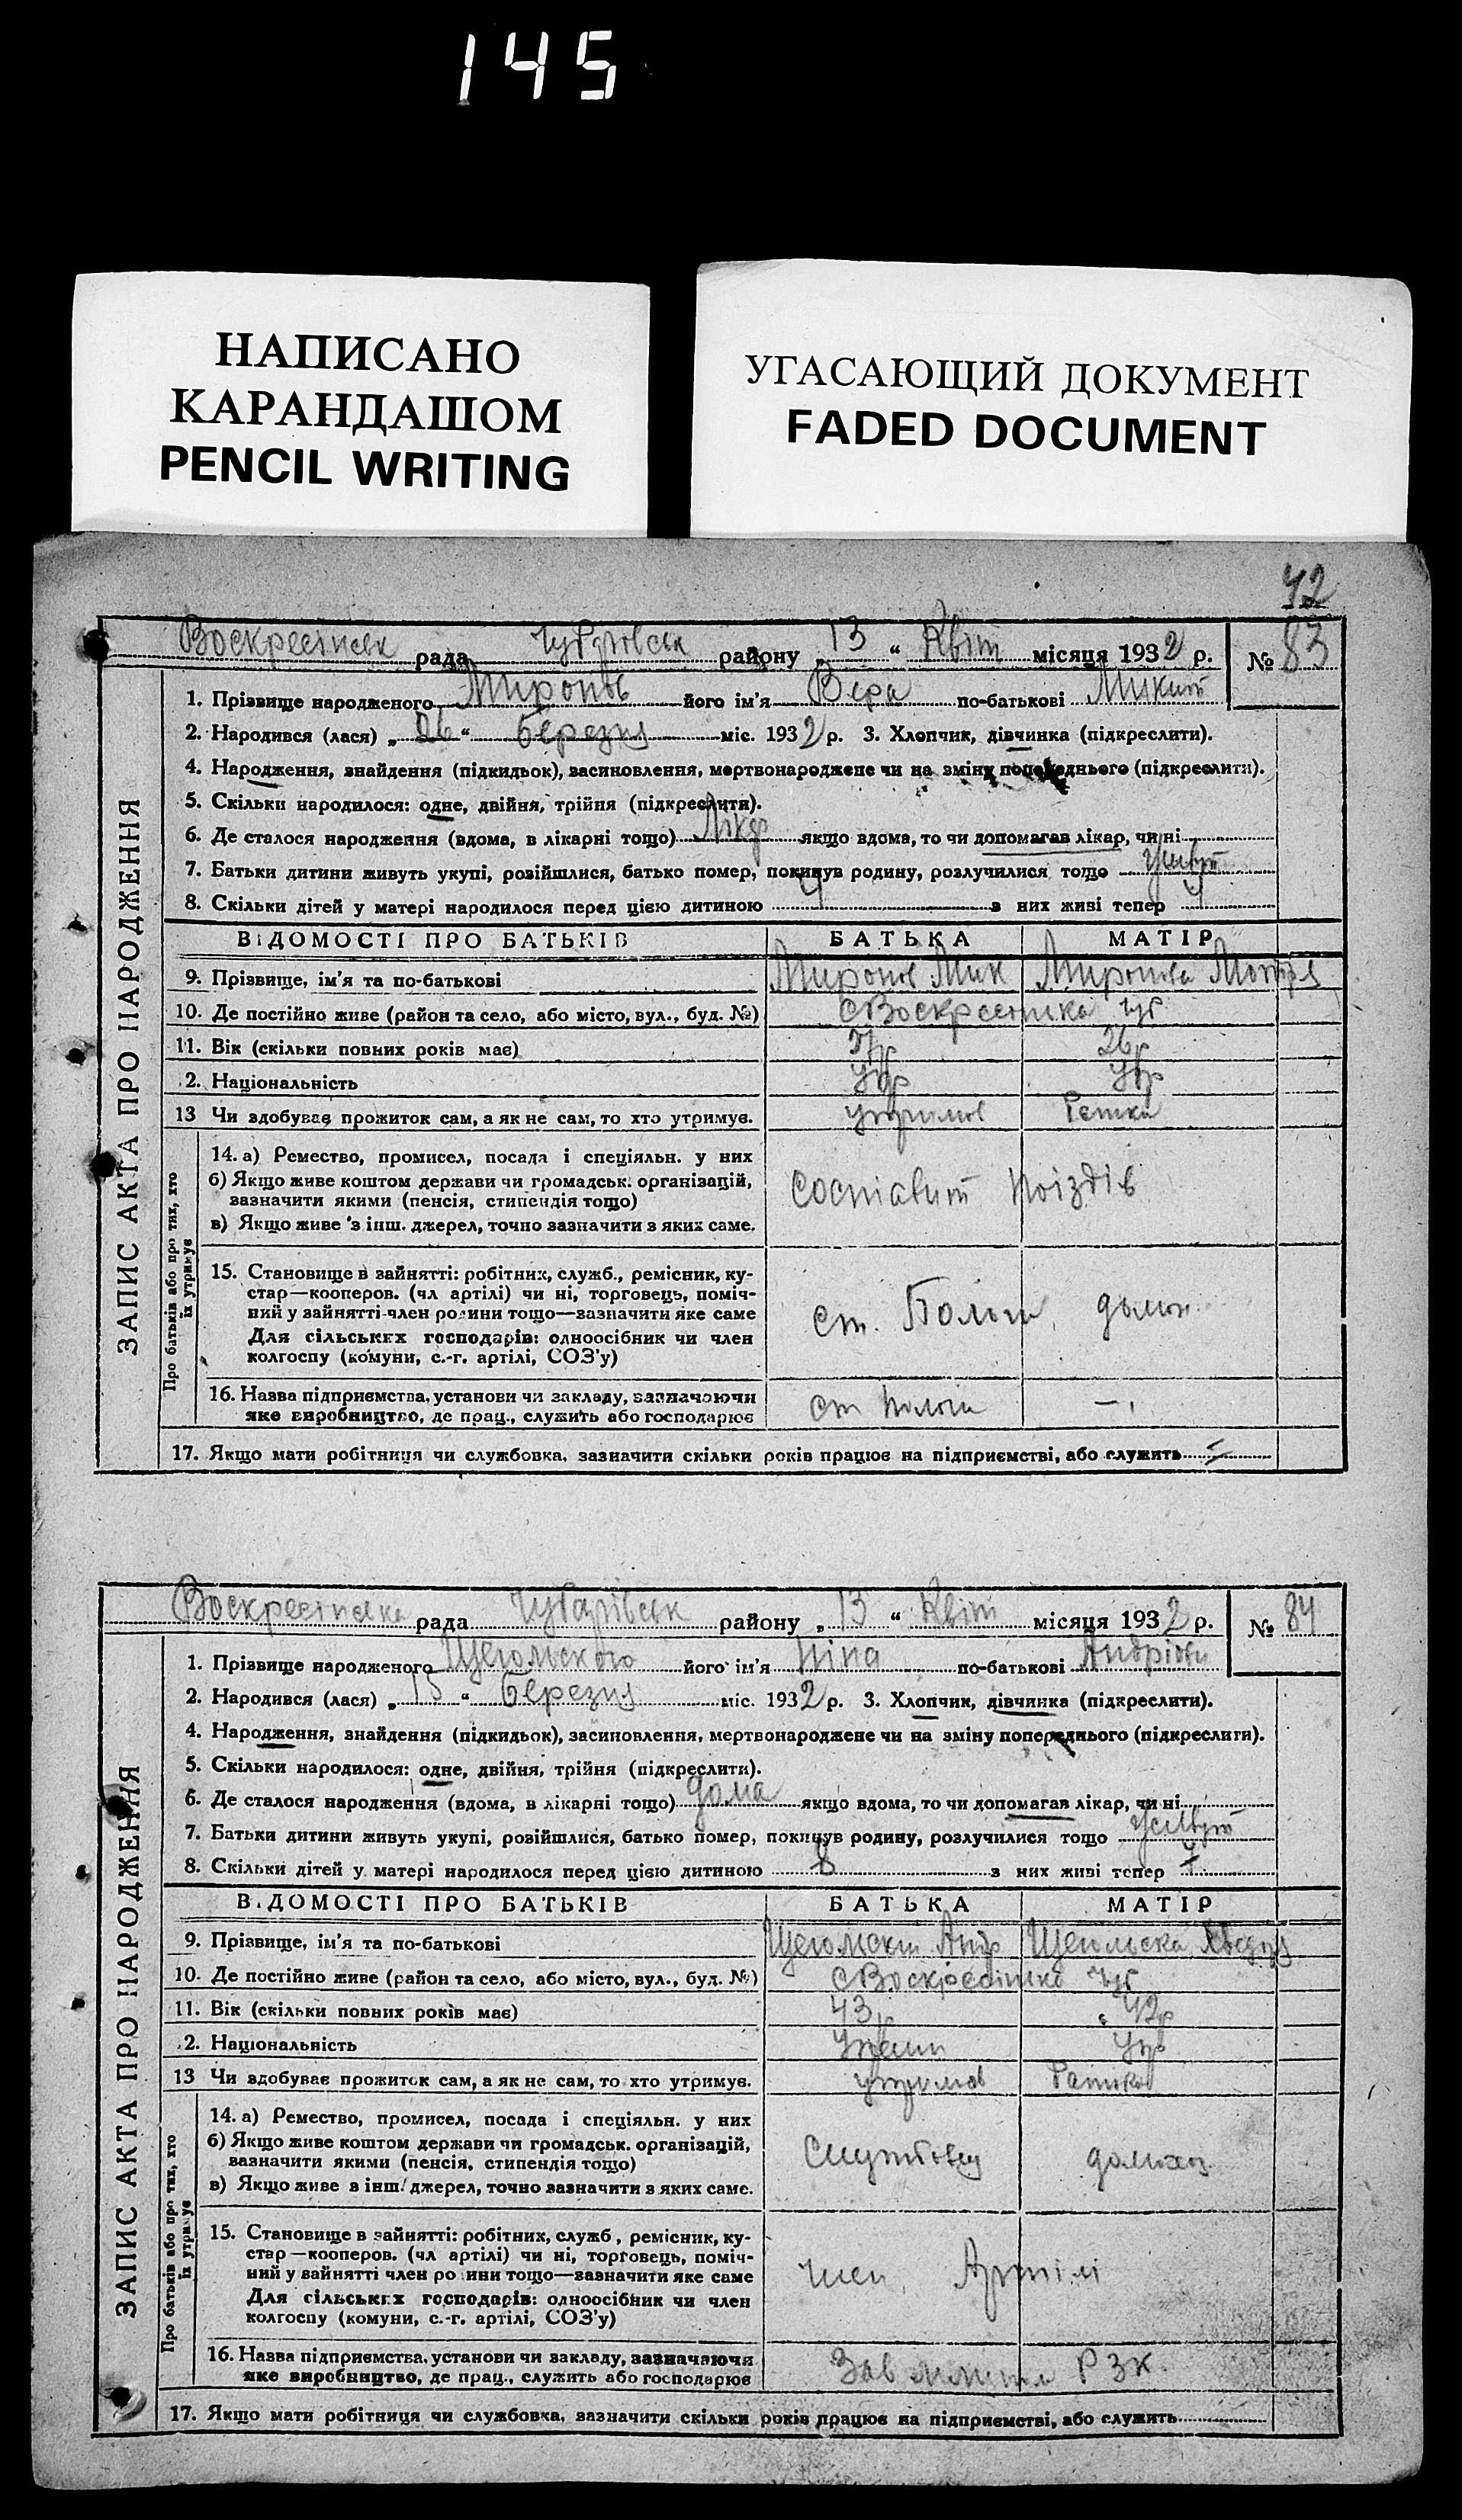 145
НАПИСАНО
КАРАНДАШОМ
PENCIL WRITING
УГАСАЮЩИЙ ДОКУМЕНТ
FADED DOCUMENT
42
Воскресінськ рада Чубарівськ району „ 13 “ Квіт місяця 1932 р. № 83
ЗАПИС АКТА ПРО НАРОДЖЕННЯ
1. Прізвище народженого Миронов його ім'я Вера по-батькові Микит
2. Народився (лася) „ 26 “ березня міс. 1932 р. 3. Хлопчик, дівчинка (підкреслити).
4. Народження, знайдення (підкидьок), засиновлення, мертвонароджене чи на зміну попереднього (підкреслити).
5. Скільки народилося: одне, двійня, трійня (підкреслити).
6. Де сталося народження (вдома, в лікарні тощо) якщо вдома, то чи допомагав лікар, чи ні
7. Батьки дитини живуть укупі, розійшлися, батько помер, покинув родину, розлучилися тощо
8. Скільки дітей у матері народилося перед цією дитиною 4 з них живі тепер 4
ВІДОМОСТІ ПРО БАТЬКІВ БАТЬКА МАТІР
9. Прізвище, ім'я та по-батькові Миронов Мик Миронова Мотря
10. Де постійно живе (район та село, або місто, вул., буд. №) с Воскресінка Чуб
11. Вік (скільки повних років має) 26р
2. Національність Укр Укр
13 Чи здобуває прожиток сам, а як не сам, то хто утримує. утримов
Про батьків або про тих, хто їх утримує
14. а) Ремество, промисел, посада і спеціяльн. у них
б) Якщо живе коштом держави чи громадськ. організацій,
зазначити якими (пенсія, стипендія тощо) Составит поіздів
в) Якщо живе з інш. джерел, точно зазначити з яких саме.
15. Становище в зайнятті: робітник, служб., ремісник, ку-
стар—кооперов. (чл артілі) чи ні, торговець, поміч-
ний у зайнятті член родини тощо—зазначити яке саме ст. Пологи
Для сільських господарів: одноосібник чи член
колгоспу (комуни, с.-г. артілі, СОЗ'у)
16. Назва підприємства, установи чи закладу, зазначаючи ст Пологи —
яке виробництво, де прац., служить або господарює
17. Якщо мати робітниця чи службовка, зазначити скільки років працює на підприємстві, або служить
Воскресінка рада Чубарівськ району „ 13 “ Квіт місяця 1932 р. № 84
ЗАПИС АКТА ПРО НАРОДЖЕННЯ
1. Прізвище народженого Щегольского його ім'я Ніна по-батькові Андріев
2. Народився (лася) „ 15 “ березня міс. 1932 р. 3. Хлопчик, дівчинка (підкреслити).
4. Народження, знайдення (підкидьок), засиновлення, мертвонароджене чи на зміну попереднього (підкреслити).
5. Скільки народилося: одне, двійня, трійня (підкреслити).
6. Де сталося народження (вдома, в лікарні тощо) дома якщо вдома, то чи допомагав лікар, чи ні
7. Батьки дитини живуть укупі, розійшлися, батько помер, покинув родину, розлучилися тощо
8. Скільки дітей у матері народилося перед цією дитиною 8 з них живі тепер 7
ВІДОМОСТІ ПРО БАТЬКІВ БАТЬКА МАТІР
9. Прізвище, ім'я та по-батькові Щегольский Андр Щегольска
10. Де постійно живе (район та село, або місто, вул., буд. №) с Воскресінка Чуб
11. Вік (скільки повних років має) 43р 42р
2. Національність Укр
13 Чи здобуває прожиток сам, а як не сам, то хто утримує. утримов
Про батьків або про тих, хто їх утримує
14. а) Ремество, промисел, посада і спеціяльн. у них
б) Якщо живе коштом держави чи громадськ. організацій,
зазначити якими (пенсія, стипендія тощо) Службовец домохоз
в) Якщо живе з інш. джерел, точно зазначити з яких саме.
15. Становище в зайнятті: робітник, служб., ремісник, ку-
стар—кооперов. (чл артілі) чи ні, торговець, поміч-
ний у зайнятті член родини тощо—зазначити яке саме член Артілі
Для сільських господарів: одноосібник чи член
колгоспу (комуни, с.-г. артілі, СОЗ'у)
16. Назва підприємства, установи чи закладу, зазначаючи Зав РЗК.
яке виробництво, де прац., служить або господарює
17. Якщо мати робітниця чи службовка, зазначити скільки років працює на підприємстві, або служить